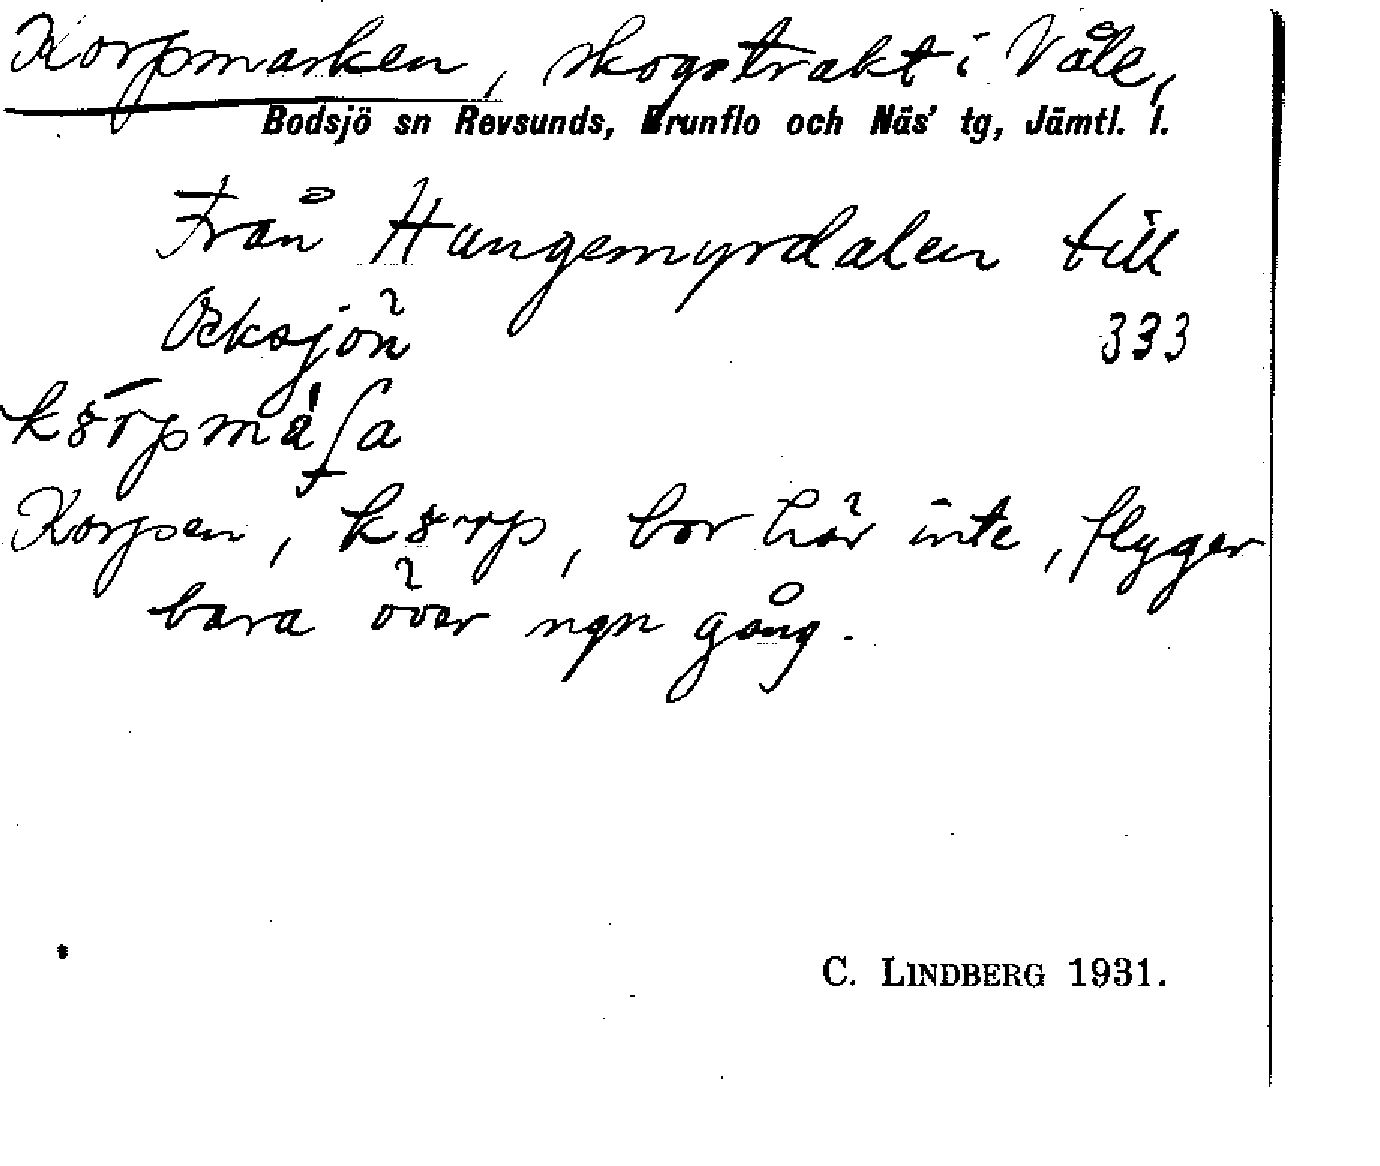 Korpmarken, skogstrakt i Våle,
Bodsjö sn Revsunds, Brunflo och Näs' tg, Jämtl. l.
Från Hungemyrdalen till
Ocksjön 333
Korpen, bor här inte, flyger
bara över ngn gång.
C. LINDBERG 1931.